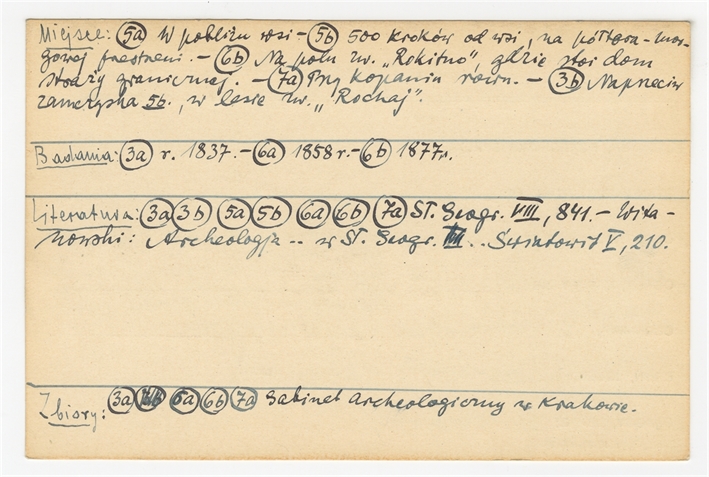 Miejsce: (5a) W pobliżu wsi - (5b) 500 kroków od wsi, na półtora-mor-
gowej przestrzeni. - (6b) Na polu zw. „Rokitno", gdzie stoi dom
straży granicznej. - (7a) Przy kopaniu rowu. - (3b) Naprzeciw
zamczyska 5b., w lesie zw. „Rochaj".
Badania: (3a) r. 1837. - (6a) 1858 r. - (6b) 1877 r.
Literatura: (3a) (3b) (5a) (5b) (6a) (6b) (7a) Sł. Geogr. VIII, 841. - Wita-
nowski: Archeologja .. w Sł. Geogr. .. Światowit V, 210.
Zbiory: (3a) (5a) (6b) (7a) Gabinet Archeologiczny w Krakowie.